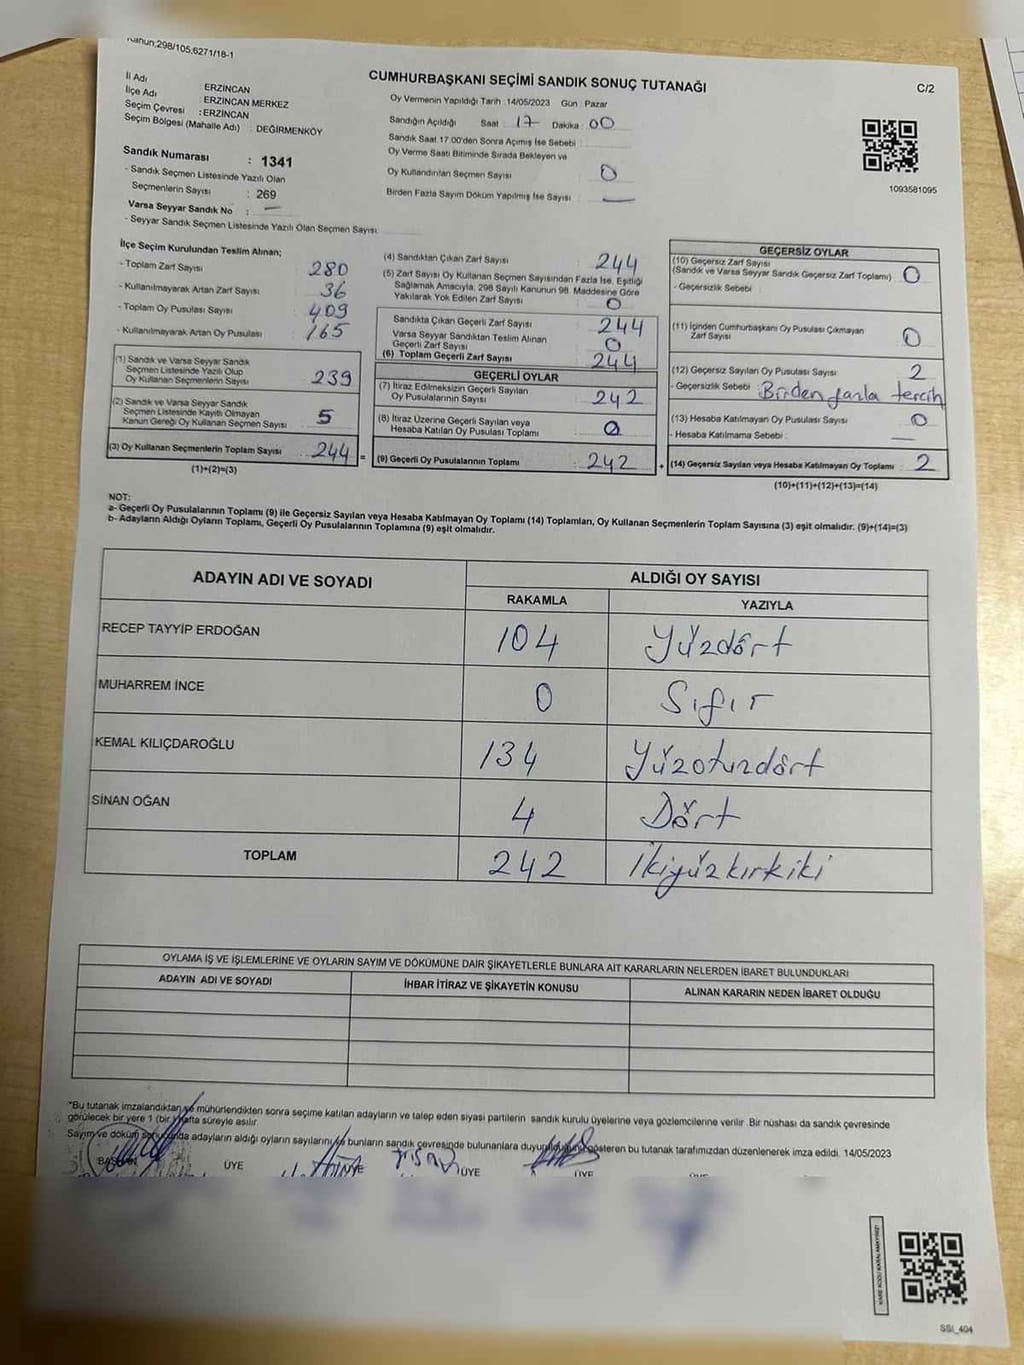 Kanun,298/105,6271/18-1
CUMHURBAŞKANI SEÇİMİ SANDIK SONUÇ TUTANAĞI
C/2
İl Adı : ERZİNCAN
İlçe Adı : ERZİNCAN MERKEZ
Seçim Çevresi : ERZİNCAN
Seçim Bölgesi (Mahalle Adı) : DEĞİRMENKÖY
Sandık Numarası : 1341
- Sandık Seçmen Listesinde Yazılı Olan
Seçmenlerin Sayısı : 269
Varsa Seyyar Sandık No : —
- Seyyar Sandık Seçmen Listesinde Yazılı Olan Seçmen Sayısı:
Oy Vermenin Yapıldığı Tarih : 14/05/2023 Gün : Pazar
Sandığın Açıldığı Saat : 17 Dakika : 00
Sandık Saat 17.00'den Sonra Açımış İse Sebebi :
Oy Verme Saati Bitiminde Sırada Bekleyen ve
Oy Kullandırılan Seçmen Sayısı : 0
Birden Fazla Sayım Döküm Yapılmış İse Sayısı : —
1093581095
İlçe Seçim Kurulundan Teslim Alınan;
- Toplam Zarf Sayısı : 280
- Kullanılmayarak Artan Zarf Sayısı : 36
- Toplam Oy Pusulası Sayısı : 409
- Kullanılmayarak Artan Oy Pusulası : 165
(1) Sandık ve Varsa Seyyar Sandık
Seçmen Listesinde Yazılı Olup
Oy Kullanan Seçmenlerin Sayısı : 239
(2) Sandık ve Varsa Seyyar Sandık
Seçmen Listesinde Kayıtlı Olmayan
Kanun Gereği Oy Kullanan Seçmen Sayısı : 5
(3) Oy Kullanan Seçmenlerin Toplam Sayısı : 244
(1)+(2)=(3)
(4) Sandıktan Çıkan Zarf Sayısı : 244
(5) Zarf Sayısı Oy Kullanan Seçmen Sayısından Fazla İse, Eşitliği
Sağlamak Amacıyla, 298 Sayılı Kanunun 98. Maddesine Göre
Yakılarak Yok Edilen Zarf Sayısı : 0
Sandıkta Çıkan Geçerli Zarf Sayısı : 244
Varsa Seyyar Sandıktan Teslim Alınan
Geçerli Zarf Sayısı : 0
(6) Toplam Geçerli Zarf Sayısı : 244
GEÇERLİ OYLAR
(7) İtiraz Edilmeksizin Geçerli Sayılan
Oy Pusulalarının Sayısı : 242
(8) İtiraz Üzerine Geçerli Sayılan veya
Hesaba Katılan Oy Pusulası Toplamı : 0
= (9) Geçerli Oy Pusulalarının Toplamı : 242
GEÇERSİZ OYLAR
(10) Geçersiz Zarf Sayısı
(Sandık ve Varsa Seyyar Sandık Geçersiz Zarf Toplamı) : 0
- Geçersizlik Sebebi :
(11) İçinden Cumhurbaşkanı Oy Pusulası Çıkmayan
Zarf Sayısı : 0
(12) Geçersiz Sayılan Oy Pusulası Sayısı : 2
- Geçersizlik Sebebi : Birden fazla tercih
(13) Hesaba Katılmayan Oy Pusulası Sayısı : 0
- Hesaba Katılmama Sebebi : —
+ (14) Geçersiz Sayılan veya Hesaba Katılmayan Oy Toplamı : 2
(10)+(11)+(12)+(13)=(14)
NOT:
a- Geçerli Oy Pusulalarının Toplamı (9) ile Geçersiz Sayılan veya Hesaba Katılmayan Oy Toplamı (14) Toplamları, Oy Kullanan Seçmenlerin Toplam Sayısına (3) eşit olmalıdır. (9)+(14)=(3)
b- Adayların Aldığı Oyların Toplamı, Geçerli Oy Pusulalarının Toplamına (9) eşit olmalıdır.
ADAYIN ADI VE SOYADI ALDIĞI OY SAYISI
RAKAMLA YAZIYLA
RECEP TAYYİP ERDOĞAN 104 Yüzdört
MUHARREM İNCE 0 Sıfır
KEMAL KILIÇDAROĞLU 134 Yüzotuzdört
SİNAN OĞAN 4 Dört
TOPLAM 242 İkiyüzkırkiki
OYLAMA İŞ VE İŞLEMLERİNE VE OYLARIN SAYIM VE DÖKÜMÜNE DAİR ŞİKAYETLERLE BUNLARA AİT KARARLARIN NELERDEN İBARET BULUNDUKLARI
ADAYIN ADI VE SOYADI İHBAR İTİRAZ VE ŞİKAYETİN KONUSU ALINAN KARARIN NEDEN İBARET OLDUĞU
"Bu tutanak imzalandıktan ve mühürlendikten sonra seçime katılan adayların ve talep eden siyasi partilerin sandık kurulu üyelerine veya gözlemcilerine verilir. Bir nüshası da sandık çevresinde
görülecek bir yere 1 (bir) hafta süreyle asılır.
Sayım ve döküm sonucunda adayların aldığı oyların sayılarını ve bunların sandık çevresinde bulunanlara duyurulduğunu gösteren bu tutanak tarafımızdan düzenlenerek imza edildi. 14/05/2023
BAŞKAN ÜYE ÜYE ÜYE ÜYE
SSİ_404